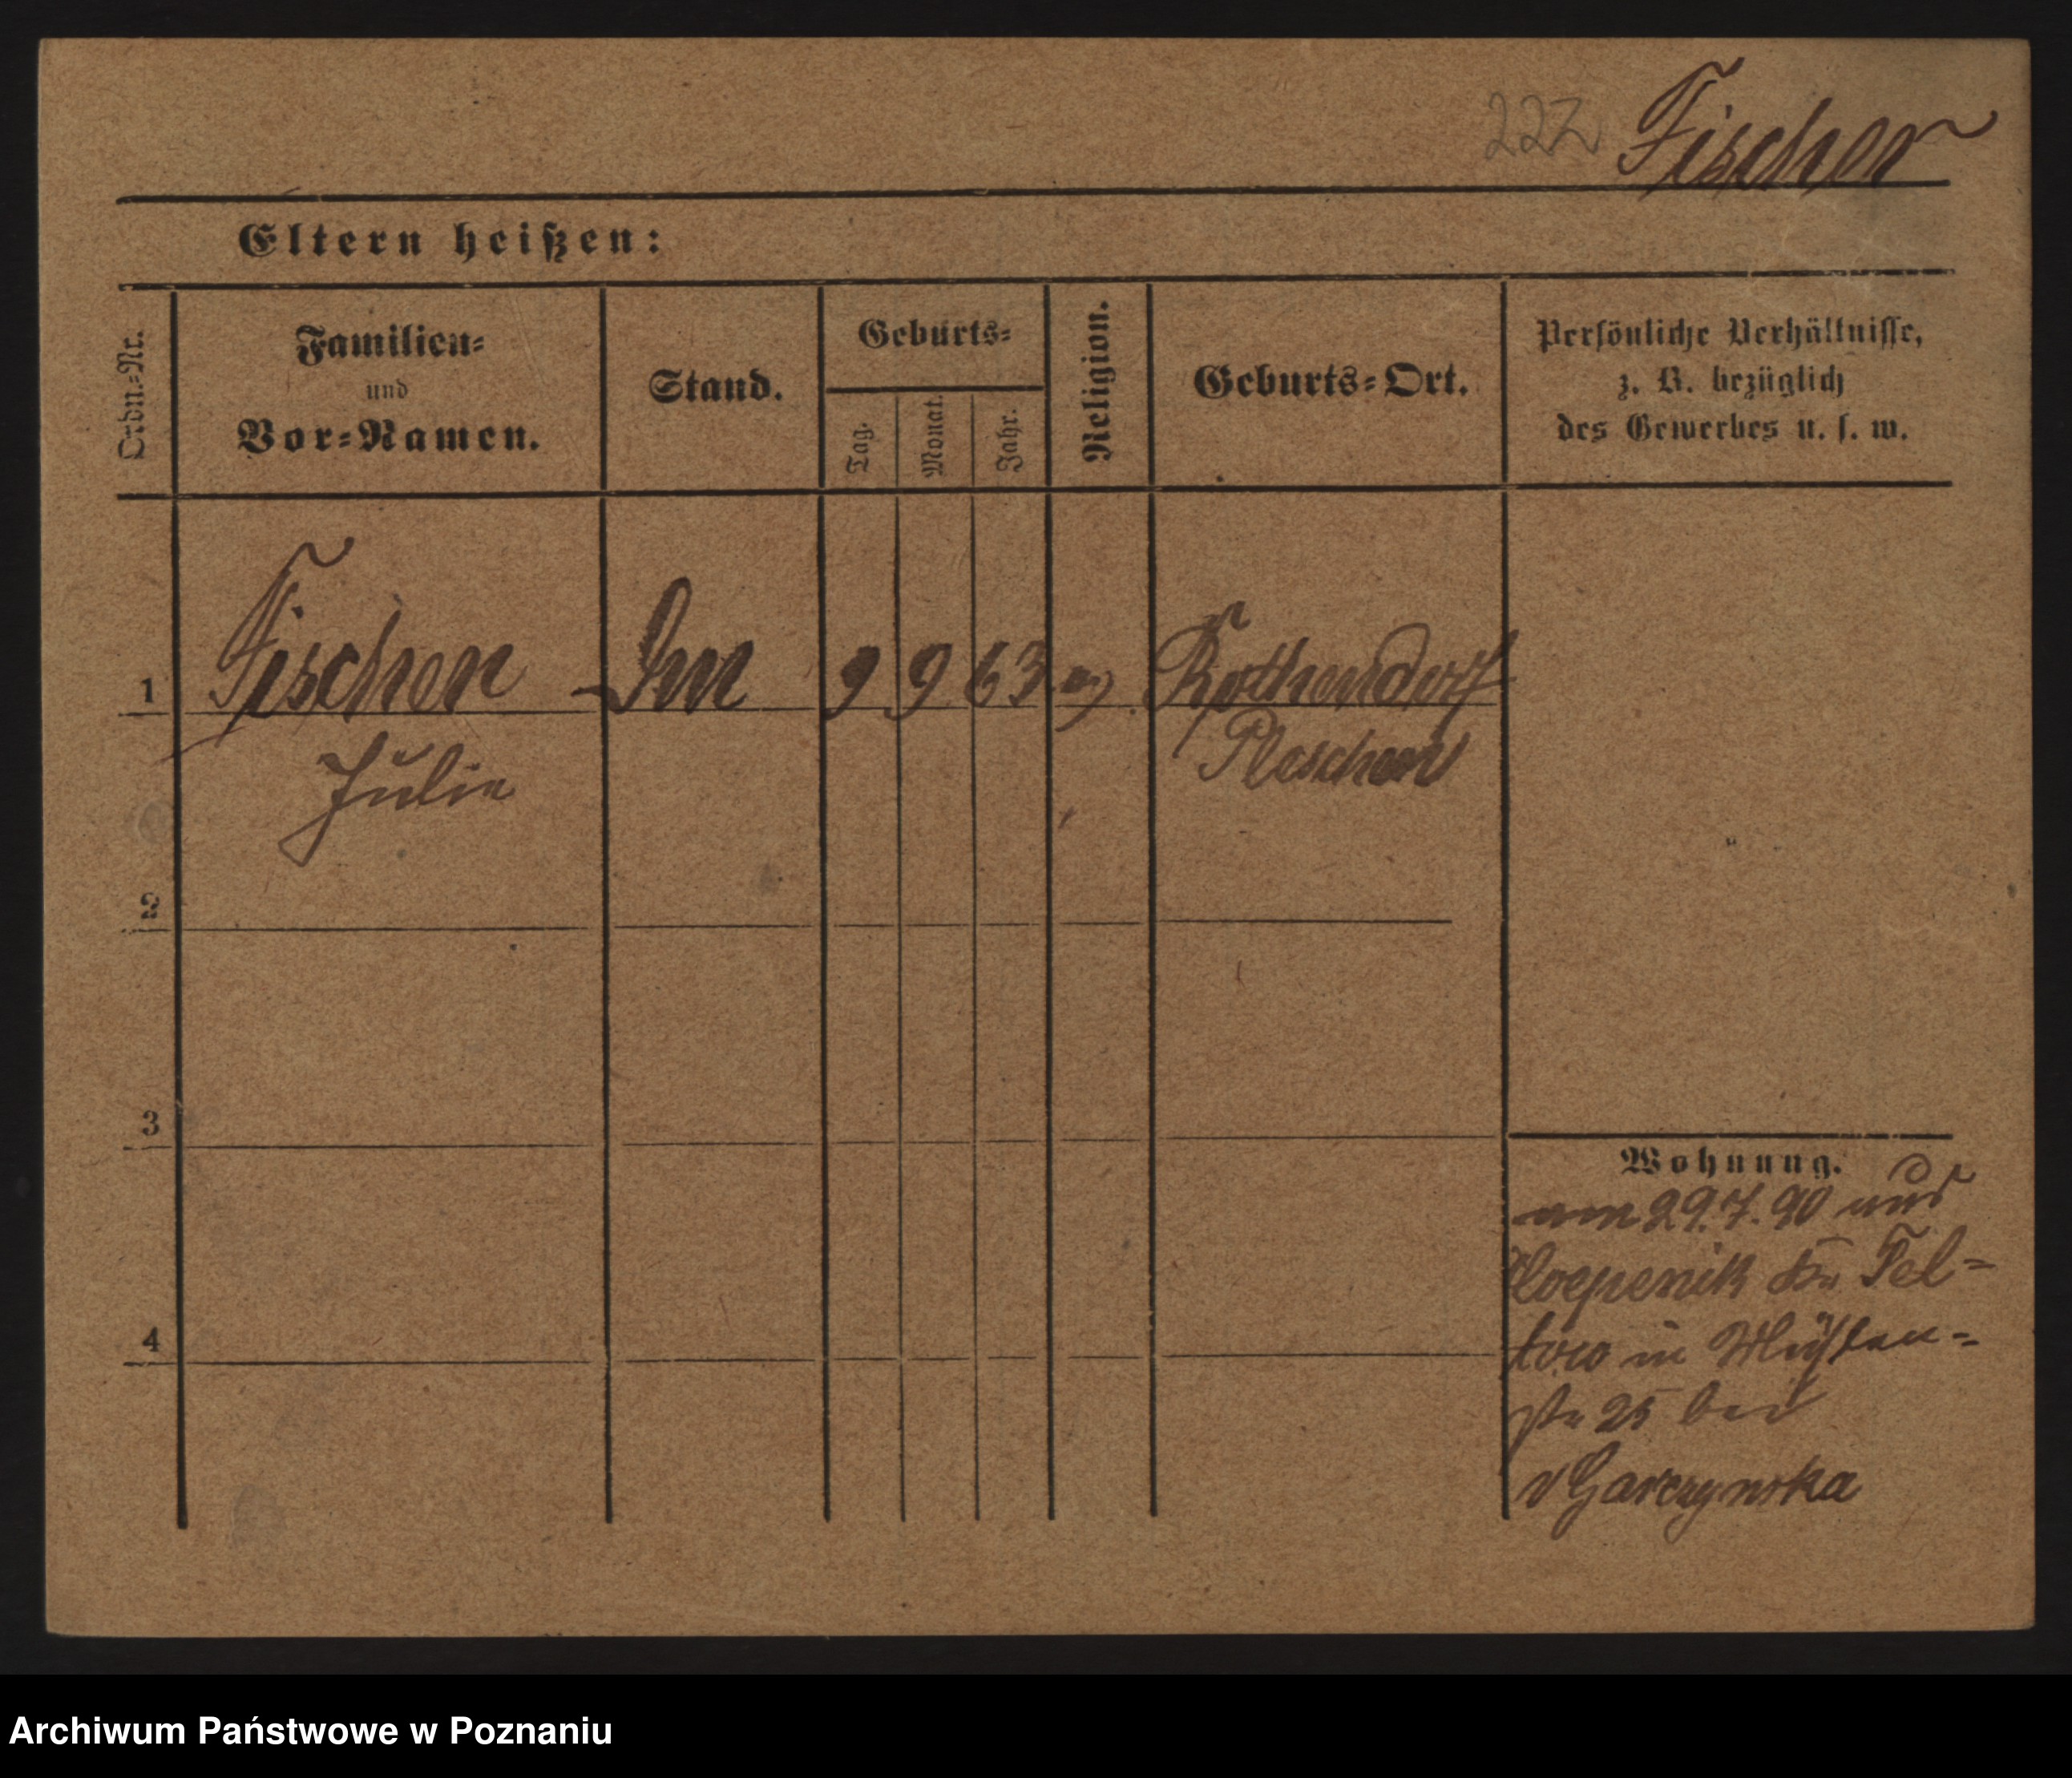 222 Fischer
Eltern heißen:
Ordn.-Nr.
Familien-
und
Vor-Namen.
Stand.
Geburts-
Tag.
Monat.
Jahr.
Religion.
Geburts-Ort.
Persönliche Verhältnisse,
z. B. bezüglich
des Gewerbes u. s. w.
1 Fischer 9 9 63 Rothendorf
Julie Pleschen
2
3
4
Wohnung.
am 29.7.90 aus
Coepenik Kr. Tel-
tow in Mühlen-
str 25 bei
v Garczynska
Archiwum Państwowe w Poznaniu